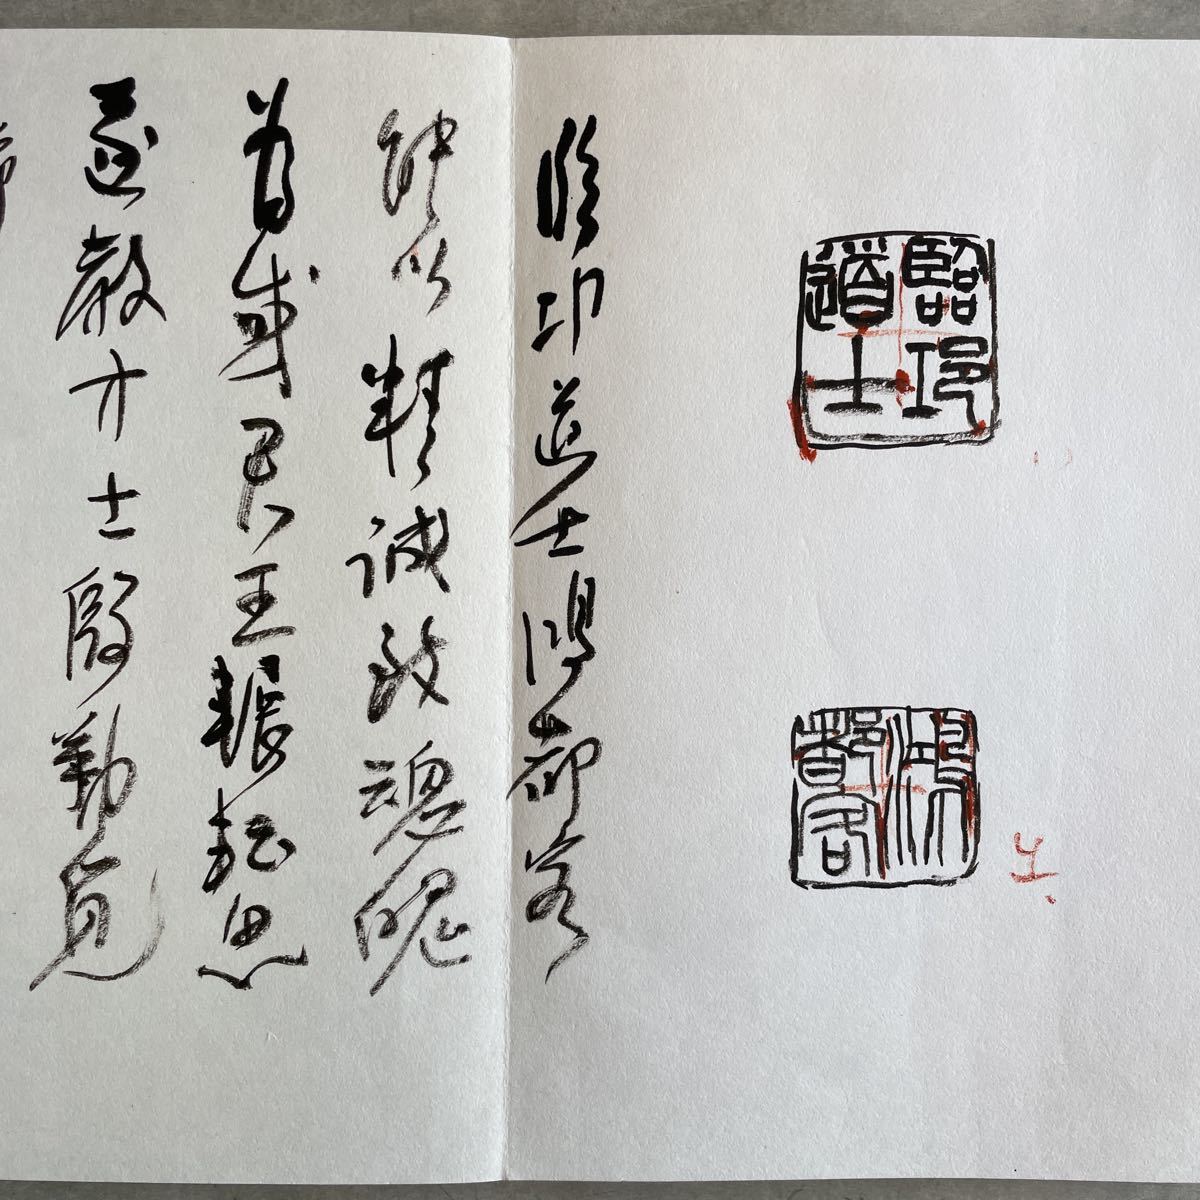 臨邛
道士
鴻
都客
臨邛道士鴻都客
能以精誠致魂魄
為感君王輾転思
遂教方士殷勤覓